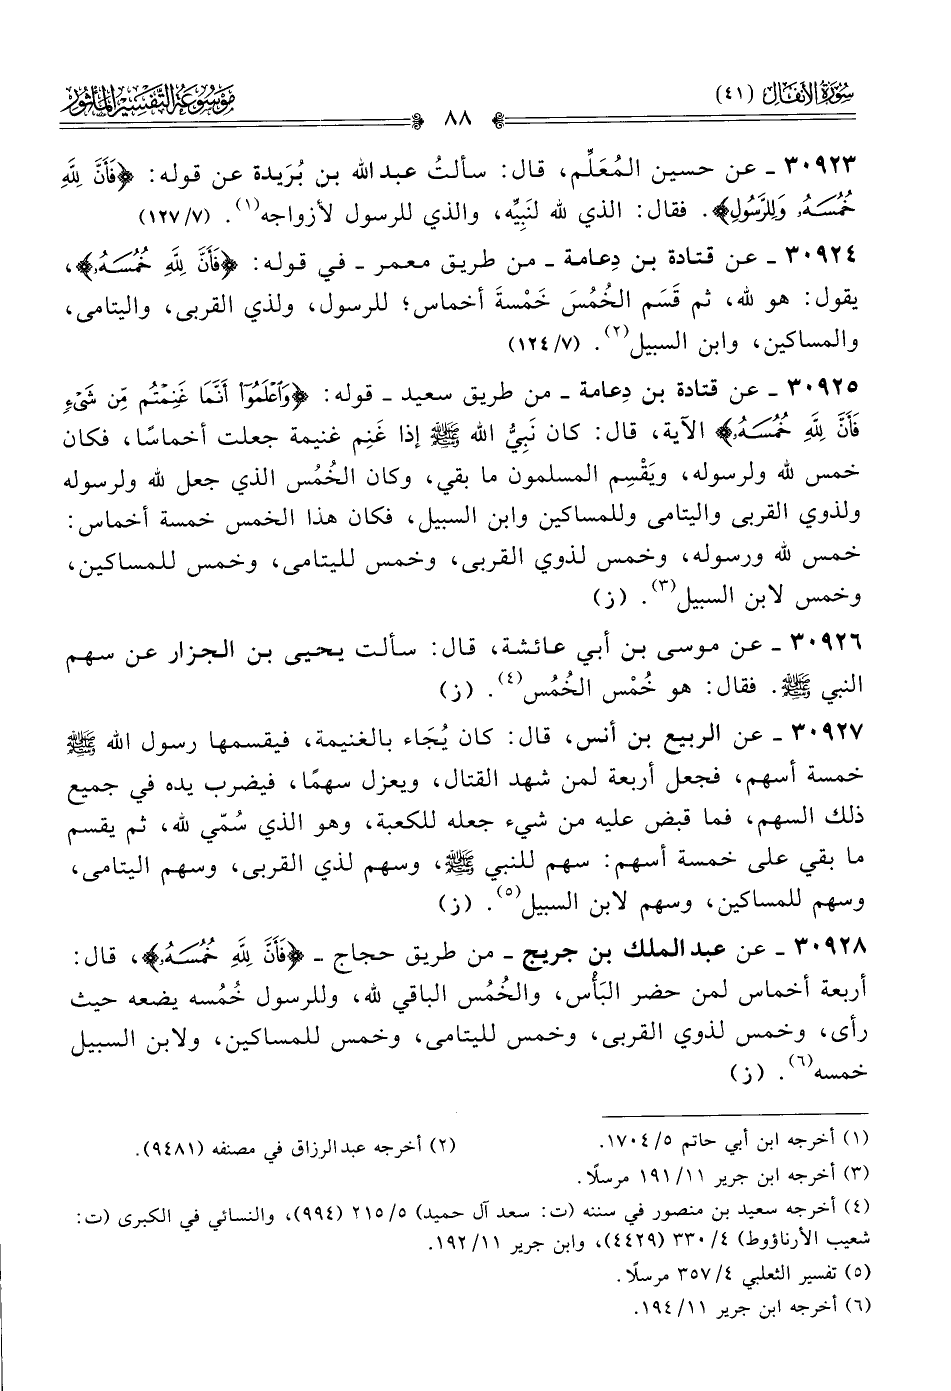 سُورَةُ الأَنفَال (٤١)
٨٨
مَوْسُوعَةُ التَّفْسِيرِ المَأْثُور
٣٠٩٢٣ ـ عن حسين المُعَلِّم، قال: سألتُ عبد الله بن بُرَيدة عن قوله: ﴿فَأَنَّ لِلَّهِ
خُمُسَهُۥ وَلِلرَّسُولِ﴾. فقال: الذي لله لنَبِيِّه، والذي للرسول لأزواجه(١). (١٢٧/٧)
٣٠٩٢٤ ـ عن قتادة بن دِعامة ـ من طريق معمر ـ في قوله: ﴿فَأَنَّ لِلَّهِ خُمُسَهُۥ﴾،
يقول: هو لله، ثم قَسَم الخُمُسَ خَمْسةَ أخماس؛ للرسول، ولذي القربى، واليتامى،
والمساكين، وابن السبيل(٢). (١٢٤/٧)
٣٠٩٢٥ ـ عن قتادة بن دِعامة ـ من طريق سعيد ـ قوله: ﴿وَٱعْلَمُوٓا۟ أَنَّمَا غَنِمْتُم مِّن شَىْءٍ
فَأَنَّ لِلَّهِ خُمُسَهُۥ﴾ الآية، قال: كان نَبِيُّ الله ﷺ إذا غَنِم غنيمة جعلت أخماسًا، فكان
خمس لله ولرسوله، ويَقْسِم المسلمون ما بقي، وكان الخُمُس الذي جعل لله ولرسوله
ولذوي القربى واليتامى وللمساكين وابن السبيل، فكان هذا الخمس خمسة أخماس:
خمس لله ورسوله، وخمس لذوي القربى، وخمس لليتامى، وخمس للمساكين،
وخمس لابن السبيل(٣). (ز)
٣٠٩٢٦ ـ عن موسى بن أبي عائشة، قال: سألت يحيى بن الجزار عن سهم
النبي ﷺ. فقال: هو خُمْس الخُمُس(٤). (ز)
٣٠٩٢٧ ـ عن الربيع بن أنس، قال: كان يُجَاء بالغنيمة، فيقسمها رسول الله ﷺ
خمسة أسهم، فجعل أربعة لمن شهد القتال، ويعزل سهمًا، فيضرب يده في جميع
ذلك السهم، فما قبض عليه من شيء جعله للكعبة، وهو الذي سُمِّي لله، ثم يقسم
ما بقي على خمسة أسهم: سهم للنبي ﷺ، وسهم لذي القربى، وسهم اليتامى،
وسهم للمساكين، وسهم لابن السبيل(٥). (ز)
٣٠٩٢٨ ـ عن عبد الملك بن جريج ـ من طريق حجاج ـ ﴿فَأَنَّ لِلَّهِ خُمُسَهُۥ﴾، قال:
أربعة أخماس لمن حضر البَأْس، والخُمُس الباقي لله، وللرسول خُمُسه يضعه حيث
رأى، وخمس لذوي القربى، وخمس لليتامى، وخمس للمساكين، ولابن السبيل
خمسه(٦). (ز)
(١) أخرجه ابن أبي حاتم ١٧٠٤/٥. (٢) أخرجه عبد الرزاق في مصنفه (٩٤٨١).
(٣) أخرجه ابن جرير ١٩١/١١ مرسلًا.
(٤) أخرجه سعيد بن منصور في سننه (ت: سعد آل حميد) ٢١٥/٥ (٩٩٤)، والنسائي في الكبرى (ت:
شعيب الأرناؤوط) ٣٣٠/٤ (٤٤٢٩)، وابن جرير ١٩٢/١١.
(٥) تفسير الثعلبي ٣٥٧/٤ مرسلًا.
(٦) أخرجه ابن جرير ١٩٤/١١.